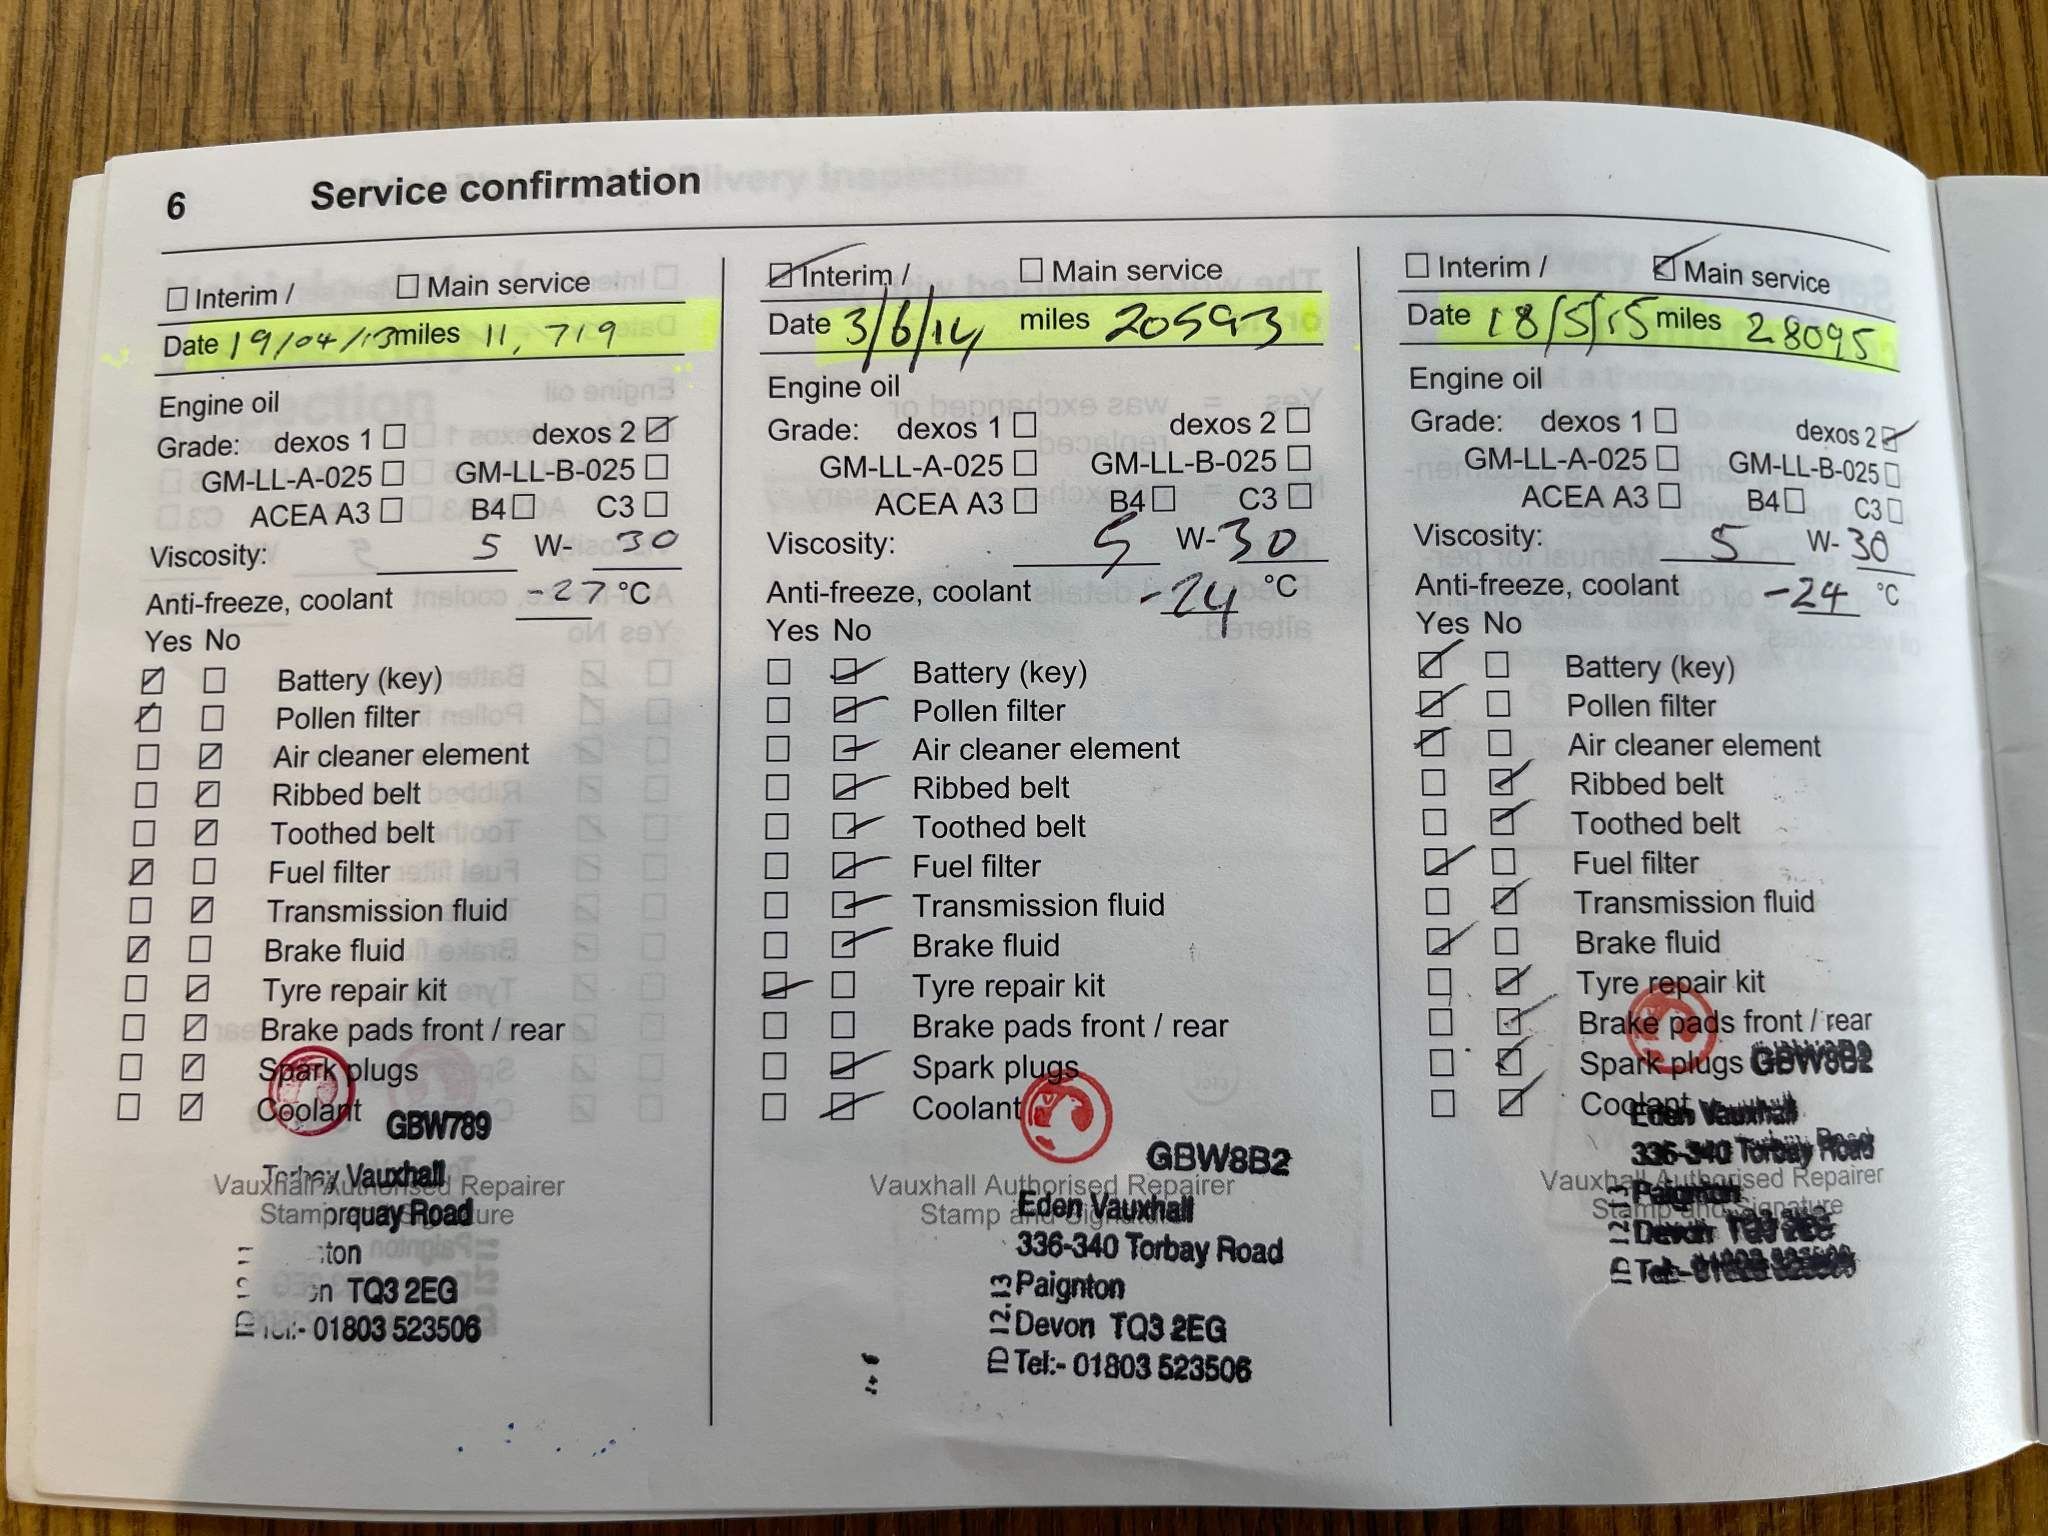 6 Service confirmation
Interim / Main service
Date 19/04/13 miles 11,719
Engine oil
Grade: dexos 1 dexos 2
GM-LL-A-025 GM-LL-B-025
ACEA A3 B4 C3
Viscosity: 5 W- 30
Anti-freeze, coolant -27 °C
Yes No
Battery (key)
Pollen filter
Air cleaner element
Ribbed belt
Toothed belt
Fuel filter
Transmission fluid
Brake fluid
Tyre repair kit
Brake pads front / rear
Spark plugs
Coolant
GBW789
Torbay Vauxhall
Vauxhall Authorised Repairer
Stamp and Signature
Road
TQ3 2EG
Tel:- 01803 523506
Interim / Main service
Date 3/6/14 miles 20593
Engine oil
Grade: dexos 1 dexos 2
GM-LL-A-025 GM-LL-B-025
ACEA A3 B4 C3
Viscosity: 5 W- 30
Anti-freeze, coolant -24 °C
Yes No
Battery (key)
Pollen filter
Air cleaner element
Ribbed belt
Toothed belt
Fuel filter
Transmission fluid
Brake fluid
Tyre repair kit
Brake pads front / rear
Spark plugs
Coolant
GBW8B2
Vauxhall Authorised Repairer
Eden Vauxhall
Stamp and Signature
336-340 Torbay Road
Paignton
Devon TQ3 2EG
Tel:- 01803 523506
ID 12.13
Interim / Main service
Date 18/5/15 miles 28095
Engine oil
Grade: dexos 1 dexos 2
GM-LL-A-025 GM-LL-B-025
ACEA A3 B4 C3
Viscosity: 5 W- 30
Anti-freeze, coolant -24 °C
Yes No
Battery (key)
Pollen filter
Air cleaner element
Ribbed belt
Toothed belt
Fuel filter
Transmission fluid
Brake fluid
Tyre repair kit
Brake pads front / rear
Spark plugs
GBW8B2
Coolant
Eden Vauxhall
336-340 Torbay Road
Vauxhall Authorised Repairer
Paignton
Stamp and Signature
Devon TQ3 2EG
Tel:- 01803 523506